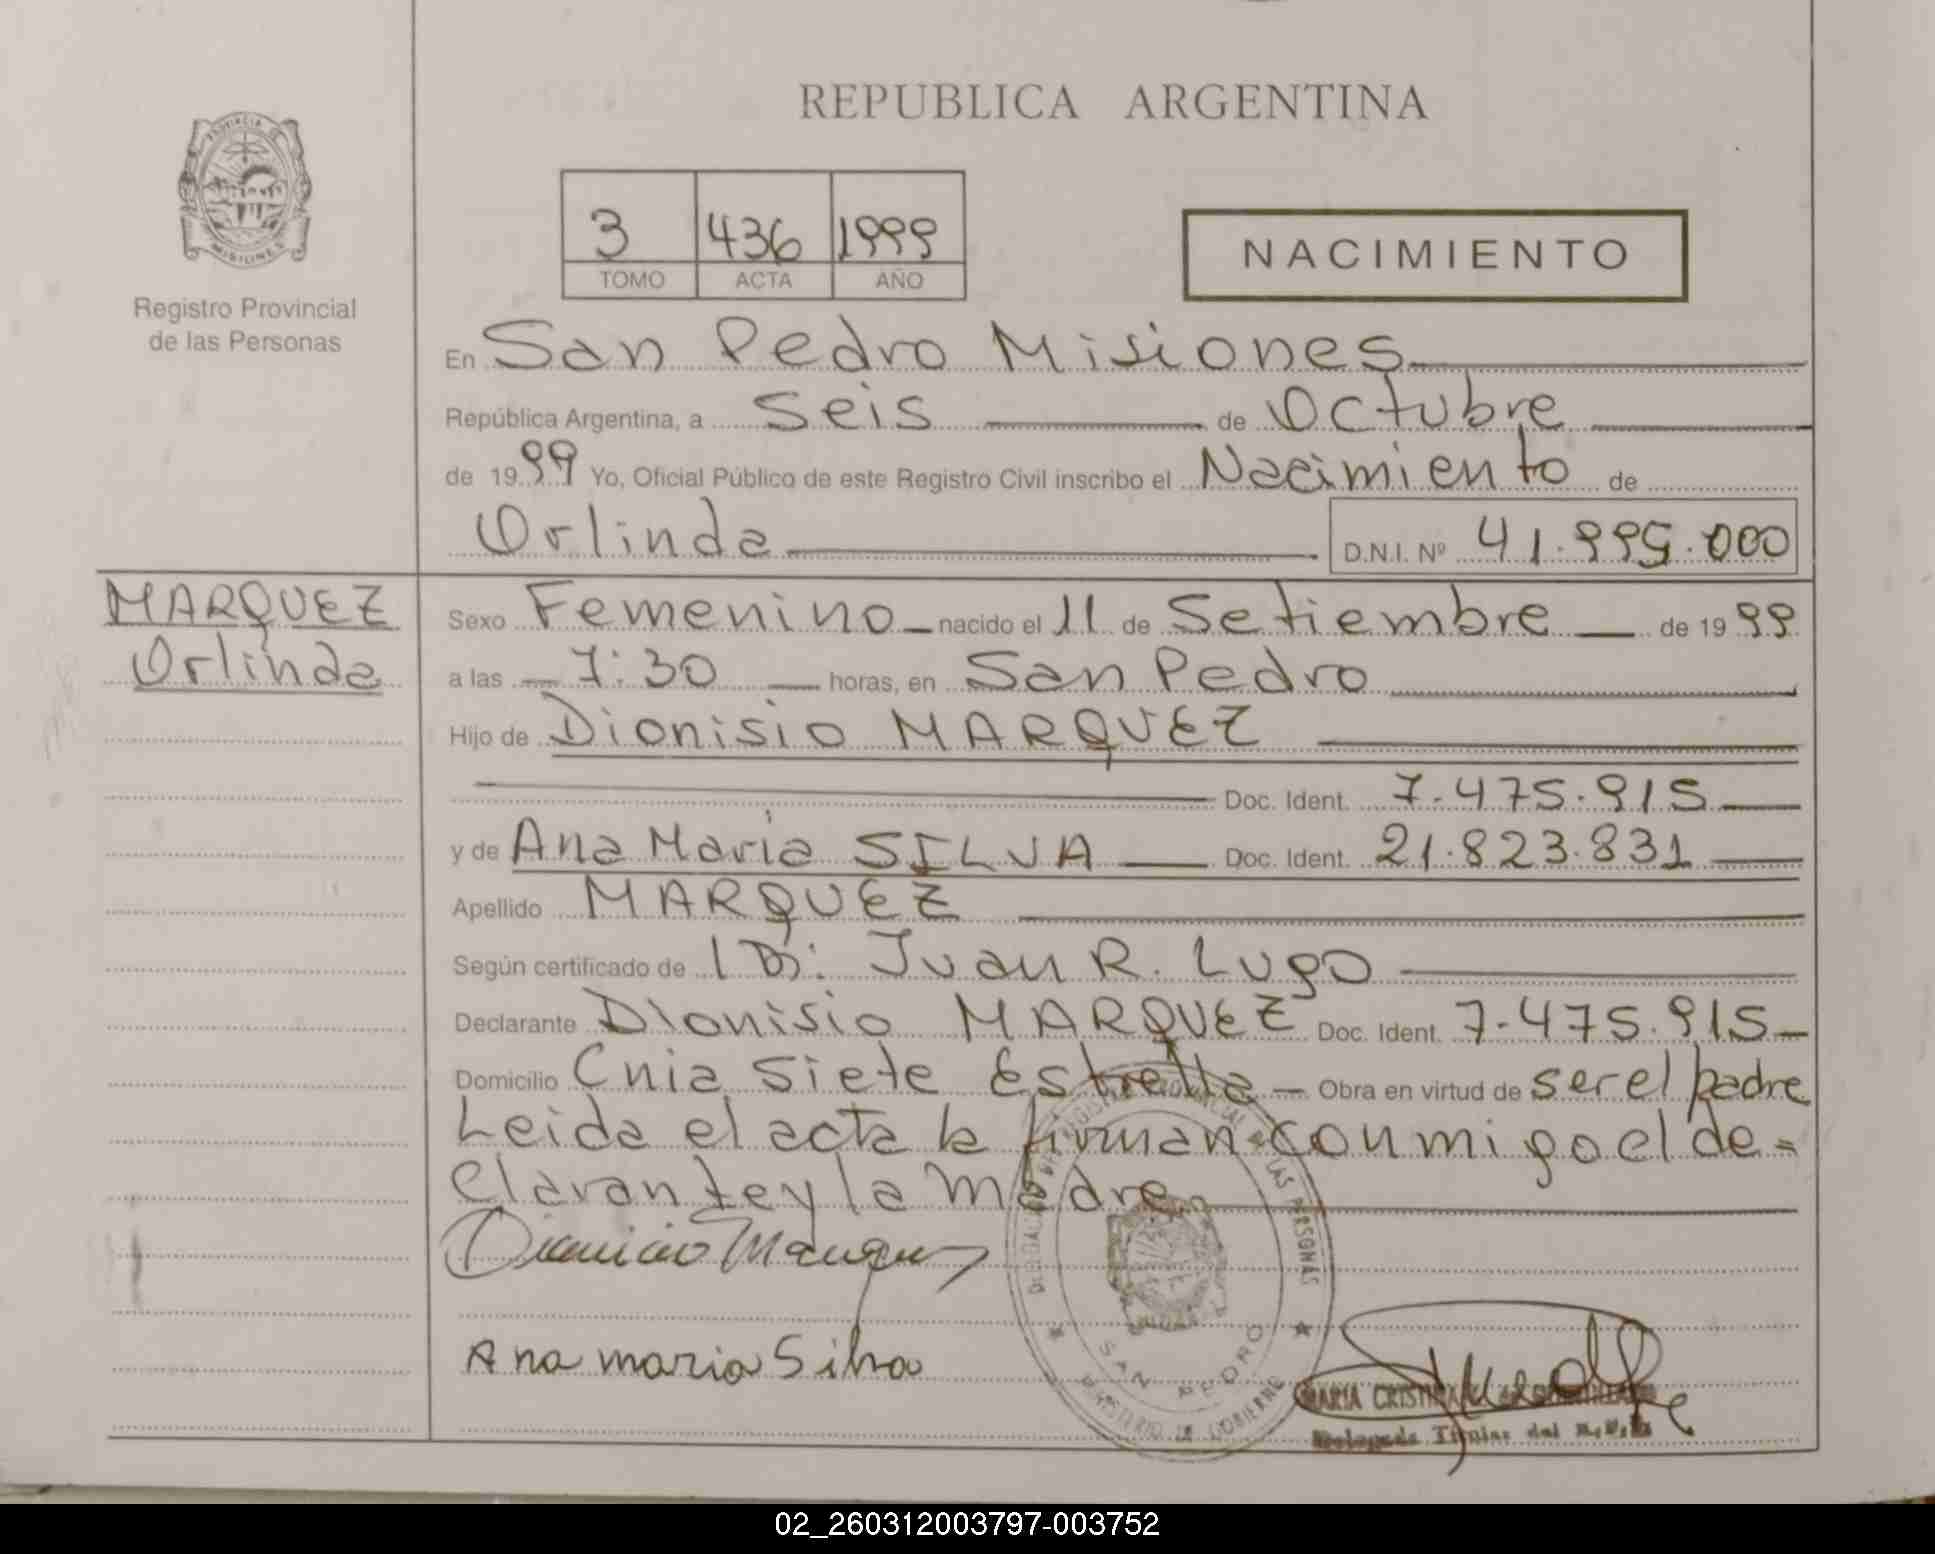 REPUBLICA ARGENTINA
PROVINCIA DE
MISIONES
Registro Provincial
de las Personas
3 436 1999
TOMO ACTA AÑO
NACIMIENTO
En San Pedro Misiones
República Argentina, a seis de Octubre
de 1999 Yo, Oficial Público de este Registro Civil inscribo el Nacimiento de
Orlinda D.N.I. Nº 41.995.000
MARQUEZ
Orlinda
Sexo Femenino nacido el 11 de Setiembre de 1999
a las 7:30 horas, en San Pedro
Hijo de Dionisio MARQUEZ
Doc. Ident. 7.475.915
y de Ana Maria SILVA Doc. Ident. 21.823.831
Apellido MARQUEZ
Según certificado de Juan R. Lugo
Declarante Dionisio MARQUEZ Doc. Ident. 7.475.915
Domicilio Cnia Siete Estrella Obra en virtud de ser el padre
Leida el acta la firman conmigo el de=
clarante y la madre
Ana maria Silva
REGISTRO PROVINCIAL DE LAS PERSONAS
SAN PEDRO
MINISTERIO DE GOBIERNO
MARIA CRISTINA
Delegada Titular del
02_260312003797-003752